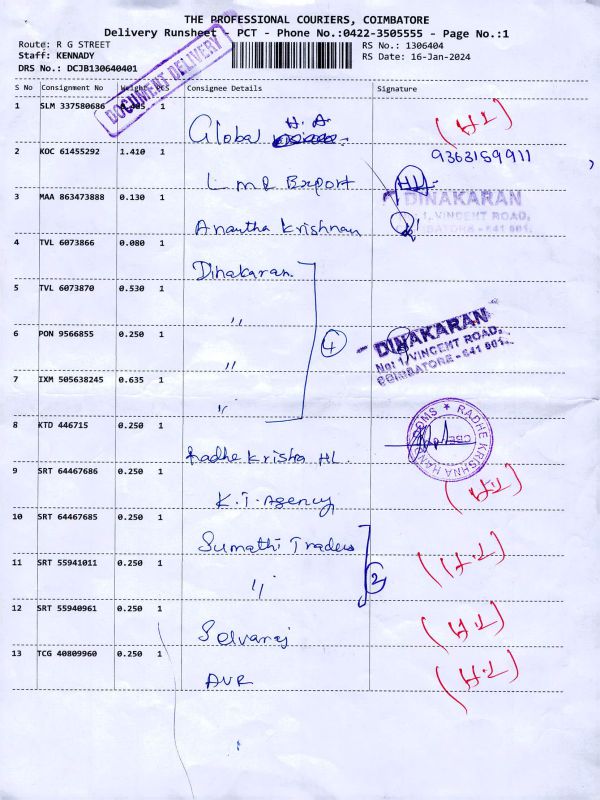 THE PROFESSIONAL COURIERS, COIMBATORE
Delivery Runsheet - PCT - Phone No.:0422-3505555 - Page No.:1
Route: R G STREET RS No.: 1306404
Staff: KENNADY RS Date: 16-Jan-2024
DRS No.: DCJB130640401
DOCUMENT DELIVERY
S No Consignment No Weight PCS Consignee Details Signature
1 SLM 337580686 1 Global H.A.
2 KOC 61455292 1.410 1 LMR Export 9363159911
3 MAA 863473888 0.130 1 Anantha Krishnan
DINAKARAN
1, VINCENT ROAD,
4 TVL 6073866 0.080 1 Dinakaran
5 TVL 6073870 0.530 1 "
6 PON 9566855 0.250 1 " 4
DINAKARAN
No: 1, VINCENT ROAD,
COIMBATORE - 641 001.
7 IXM 505638245 0.635 1 "
8 KTD 446715 0.250 1 Radhe Krishna HL.
RADHE KRISHNA HANDLOOMS
CBE
9 SRT 64467686 0.250 1 K.T. Agency
10 SRT 64467685 0.250 1 Sumathi Traders
11 SRT 55941011 0.250 1 " 2
12 SRT 55940961 0.250 1 Selvaraj
13 TCG 40809960 0.250 1 AVR